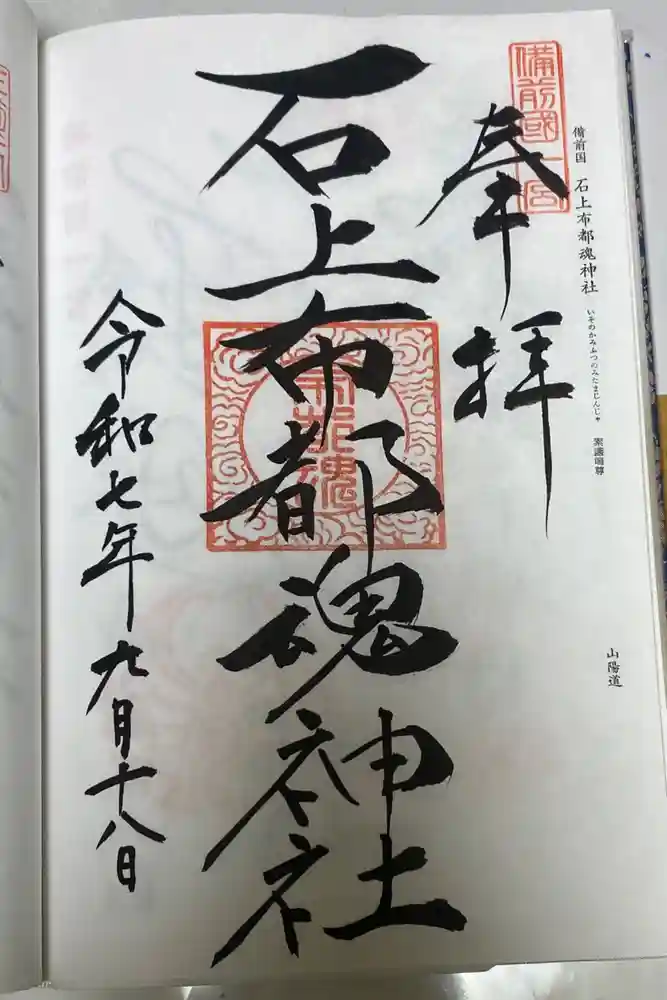 備前國一宮
備前国 石上布都魂神社
いそのかみふつのみたまじんじゃ
素議鳴尊
山陽道
奉拝
石上布都魂神社
令和七年九月十八日